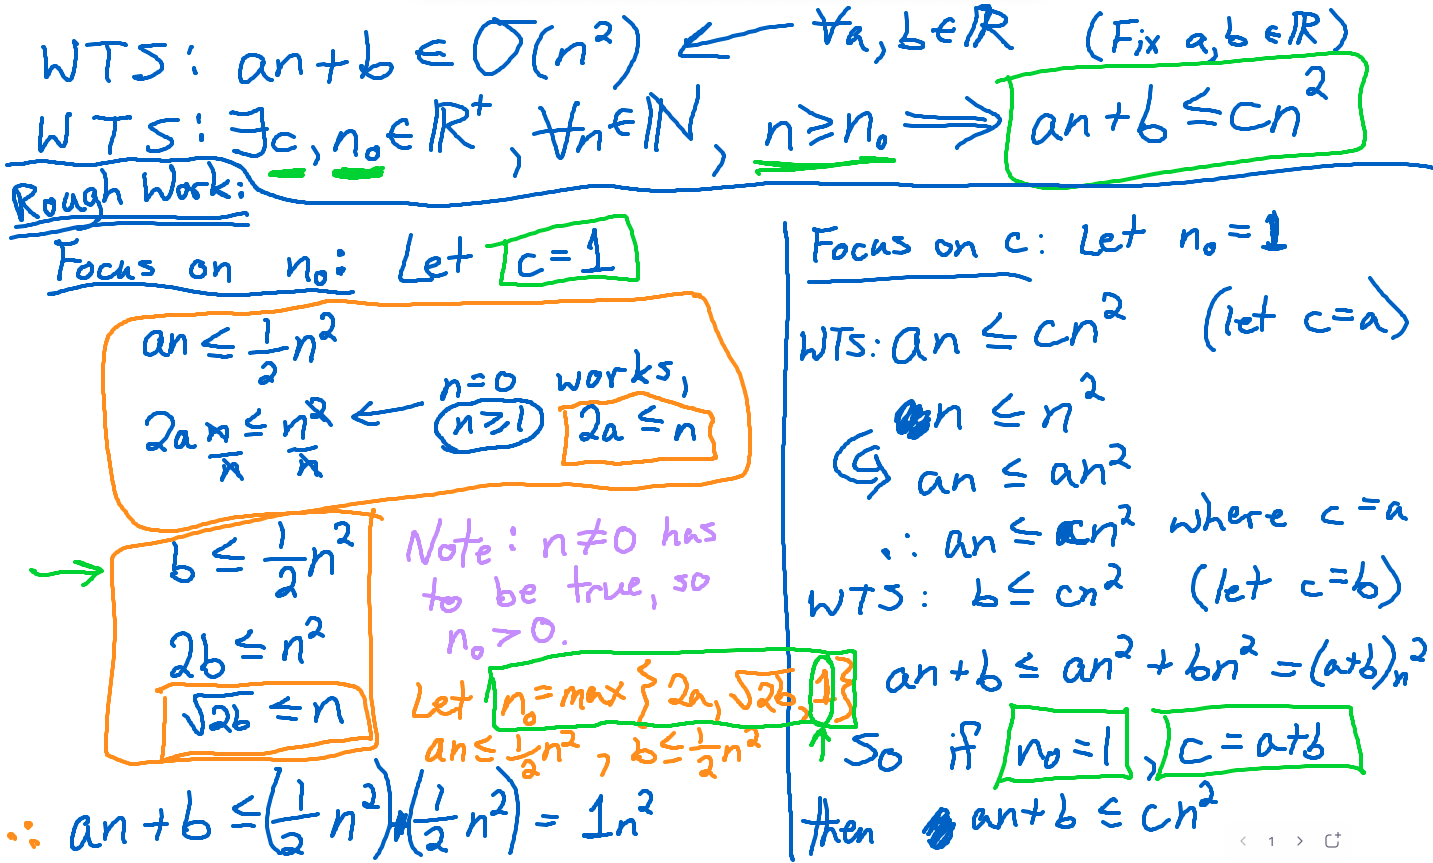 WTS: an+b ∈ O(n²) ← ∀a, b∈ℝ (Fix a,b ∈ℝ)
WTS: ∃c, n₀∈ℝ⁺, ∀n∈ℕ, n≥n₀ ⟹ an+b ≤ cn²
Rough Work:
Focus on n₀: Let c=1
an ≤ 1/2 n²
2a n/n ≤ n²/n ← n=0 works,
n≥1 2a ≤ n
b ≤ 1/2 n²
2b ≤ n²
√2b ≤ n
Note: n≠0 has
to be true, so
n₀ > 0.
Let n₀ = max { 2a, √2b, 1}
an ≤ 1/2 n², b ≤ 1/2 n²
∴ an+b ≤ (1/2 n²)+(1/2 n²) = 1n²
Focus on c: Let n₀ = 1
WTS: an ≤ cn² (let c=a)
n ≤ n²
an ≤ an²
∴ an ≤ cn² where c=a
WTS: b ≤ cn² (let c=b)
an+b ≤ an² + bn² = (a+b)n²
So if n₀=1, c = a+b
then an+b ≤ cn²
1